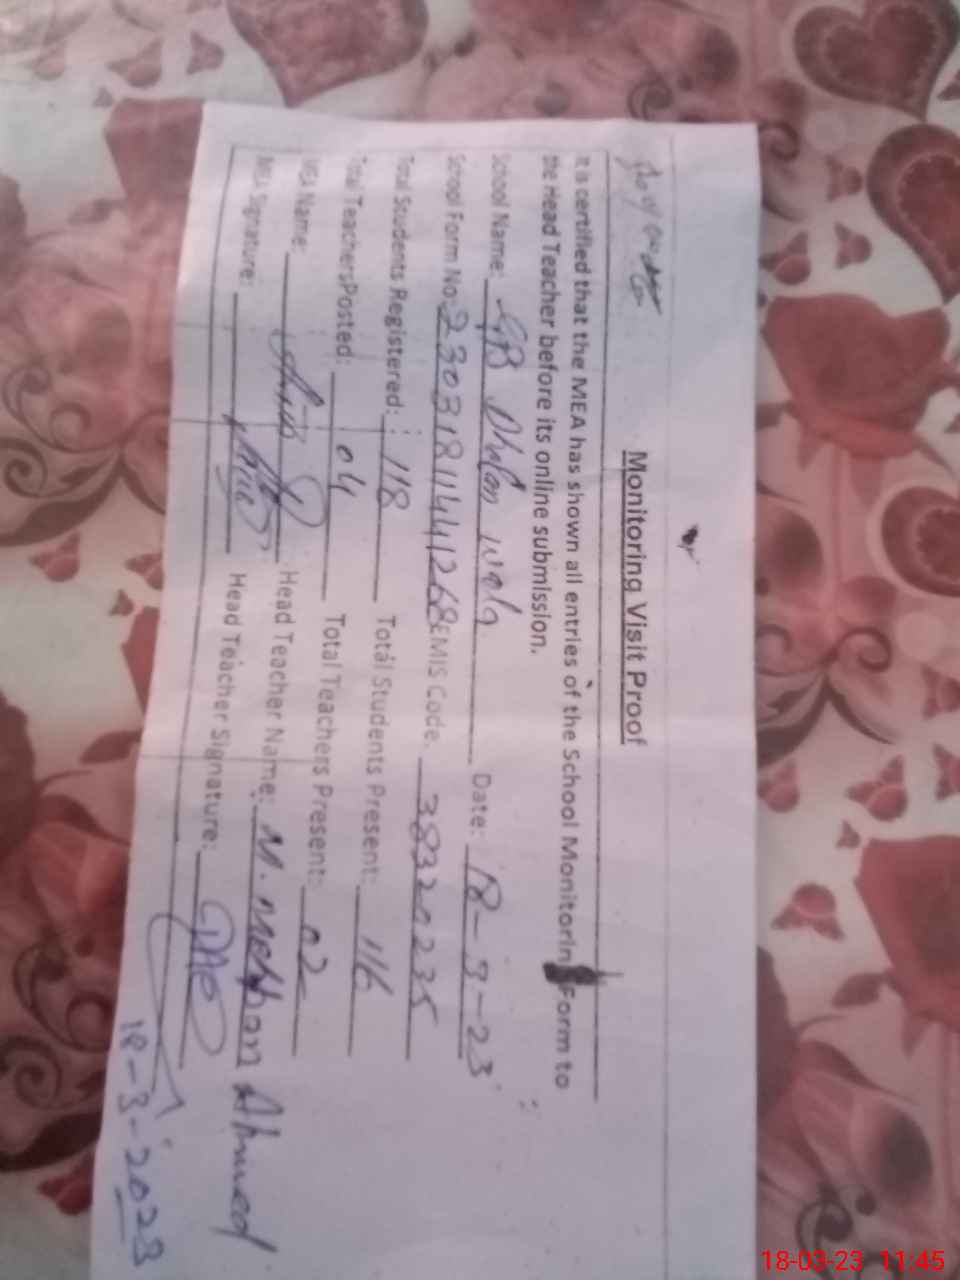 Monitoring Visit Proof
It is certified that the MEA has shown all entries of the School Monitorin Form to
the Head Teacher before its online submission.
School Name: Date: 18-3-23
School Form No: 230318114441268 EMIS Code. 38320235
Total Students Registered: 118 Total Students Present: 116
Total Teachers Posted: 04 Total Teachers Present: 02
MEA Name: Head Teacher Name: M. Ahmed
MEA Signature: Head Teacher Signature:
18-3-2023
18-03-23 11:45